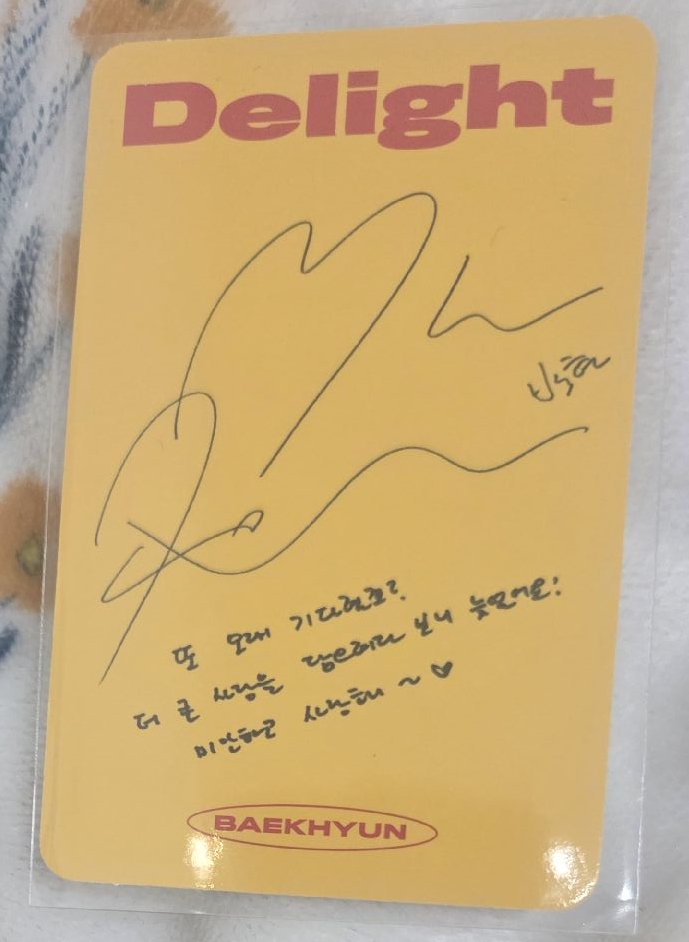 Delight
백현
또 오래 기다렸죠?
더 큰 사랑을 담으려다 보니 늦었어요!
미안하고 사랑해 ~ ♥
BAEKHYUN